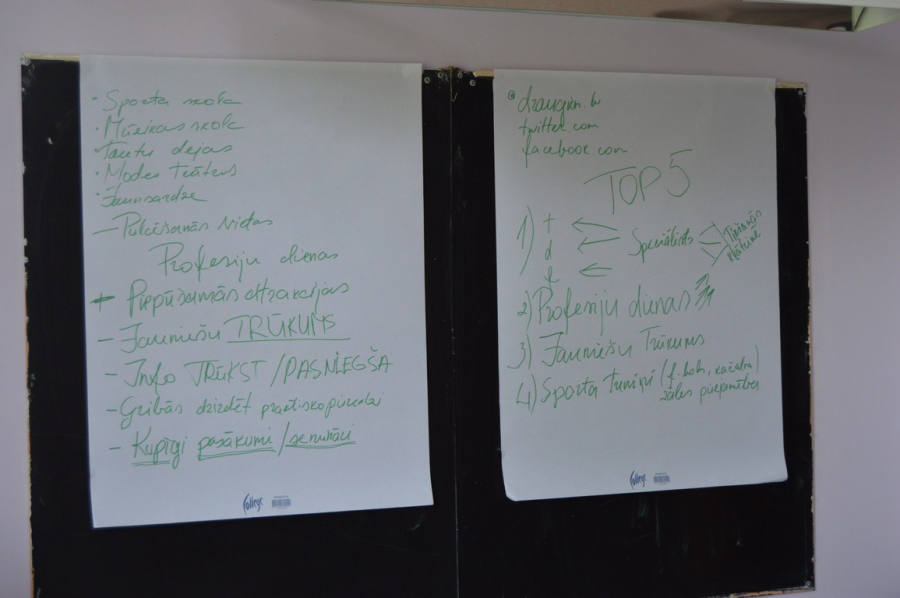 · Sporta skola
· Mūzikas skola
· Tautu dejas
· Modes teātris
· Jaunsardze
– Pulcēšanās vietas
Profesiju dienas
+ Piepūšamās atrakcijas
– Jauniešu TRŪKUMS
– Info TRŪKST / PASNIEGŠA
– Gribās dzirdēt praktisko pieredzi
– Kopīgi pasākumi / semināri
College
draugiem.lv
twitter.com
facebook.com
TOP 5
1) t
d Speciālists
f
2) Profesiju dienas
3) Jauniešu Trūkums
4) Sporta turnīri (f. bols,
zāles pieejamība
College